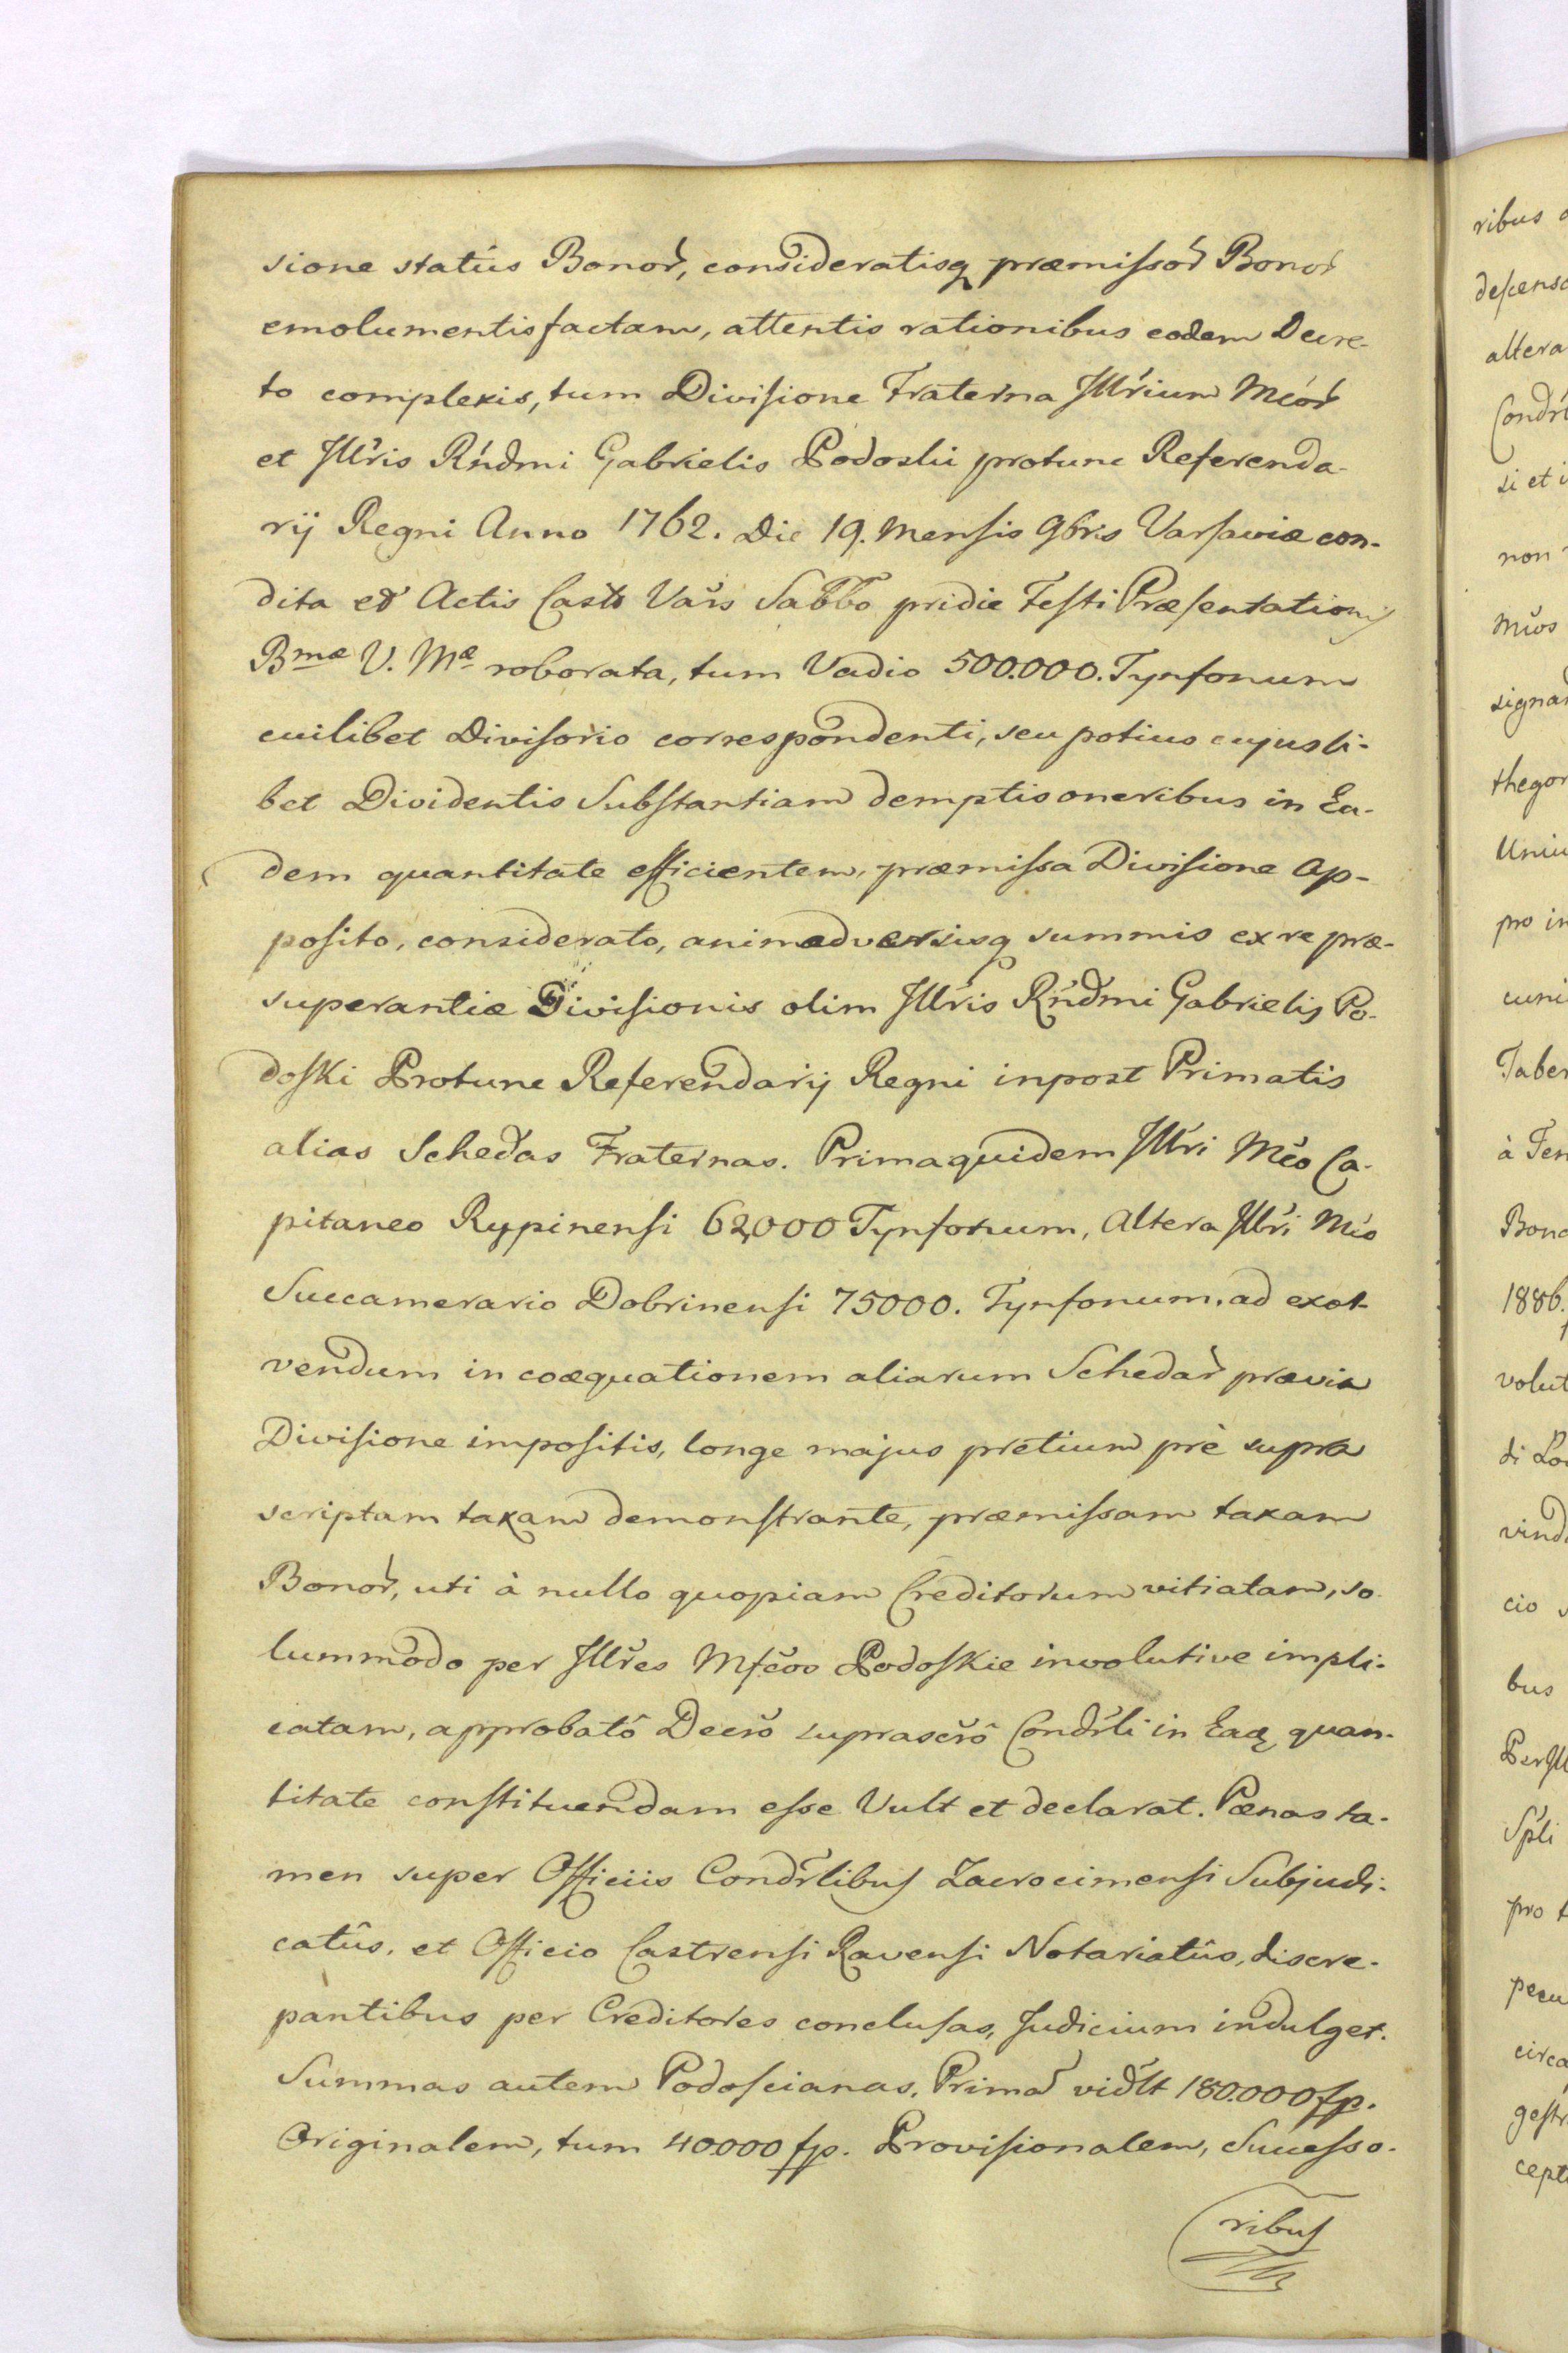 sione statús Bonoꝝ, consideratisq præmissoꝝ Bonoꝝ
emolumentis factam, attentis rationibus eodem Decre-
to complexis, tum Divisione Fraterna Illr̃ium Mcóꝝ
et Illr̃is Rńdmi Gabrielis Podoskii protunc Referenda-
rij Regni Anno 1762. Die 19. Mensis 9bris Varsaviæ con-
dita et Actis Castr̃ Varš Sabbo pridie Festi Præsentationis
Bmæ V. Mæ roborata, tum Vadio 500.000. Tynfonum
cuilibet Divisorio correspondenti, seu potius cujusli-
bet Dividentis Substantiam demptis oneribus in Ea-
dem quantitate efficientem, præmissa Divisione ap-
posito, considerato, animadversisq summis ex re præ-
superantiæ Divisionis olim Illr̃is Rńdmi Gabrielis Po-
doski Protunc Referendarij Regni inpost Primatis
alias Schedas Fraternas. Prima quidem Illr̃i Mc̃o Ca-
pitaneo Rypinensi 62,000 Tynfonum, Altera Illr̃i Mc̃o
Succamerario Dobrinensi 75000. Tynfonum, ad exol-
vendum in coæquationem aliarum Schedaꝝ prævia
Divisione impositis, longe majus pretium præ supra
scriptam taxam demonstrante, præmissam taxam
Bonoꝝ, uti à nullo quopiam Creditorum vitiatam, so-
lummodo per Illr̃es Mfc̃os Podoskie involutive impli-
catam, approbatô Decr̃o suprascr̃ô Condr̃li in Eaq quan-
titate constituendam esse Vult et declarat. Pœnas ta-
men super Officiis Condr̃libus Zacrocimensi Subjudi-
catûs, et Officio Castrensi Ravensi Notariatûs, discre-
pantibus per Creditores conclusas, Judicium indulget.
Summas autem Podoscianas, Primã vid̃lt 180.000 fp.
Originalem, tum 40.000 fp. Provisionalem, Successo-
ribus
ribus
altera
si et
non
signa
thegor
pro in
à
1886.
volut
cio
bus
pro
circa